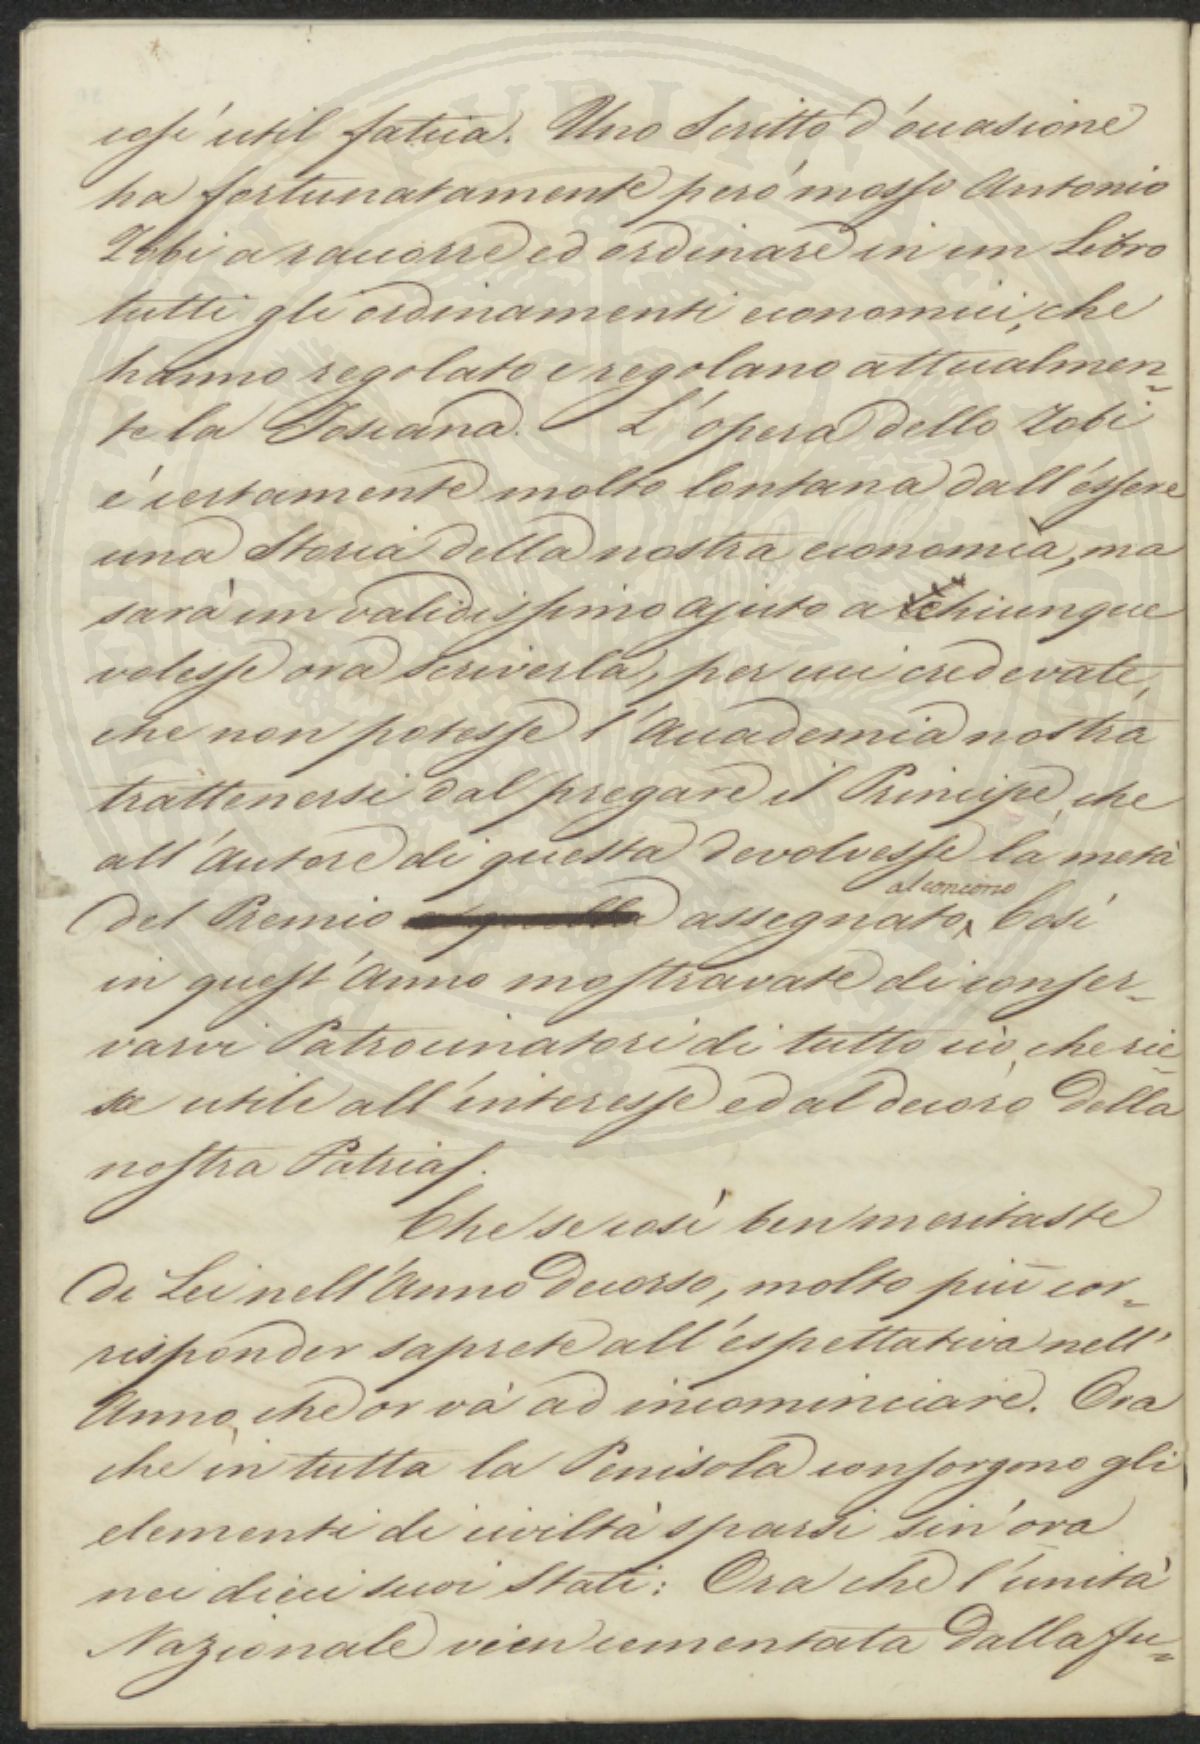 così util fatica. Uno Scritto d'occasione
ha fortunatamente però mosso Antonio
Zobi a raccorre ed ordinare in un Libro
tutti gli ordinamenti economici, che
hanno regolato e regolano attualmen=
te la Toscana. L'opera dello Zobi
è certamente molto lontana dall'essere
una Storia della nostra economia, ma
sarà un validissimo ajuto a chiunque
volesse ora scriverla, per cui credevate,
che non potesse l'Accademia nostra
trattenersi dal pregare il Principe, che
all'Autore di questa devolvesse la metà
del Premio assegnato al concorso. Così
in quest'Anno mostravate di conser=
varvi Patrocinatori di tutto ciò, che rie=
sce utile all'interesse ed al decoro della
nostra Patria.
Che se così ben meritaste
di Lei nell'Anno decorso, molto più cor=
risponder saprete all'espettativa nell'
Anno, che or và ad incominciare. Ora
che in tutta la Penisola consorgono gli
elementi di civiltà sparsi sin'ora
nei dieci suoi Stati: Ora che l'unità
Nazionale vien cementata dalla fu=